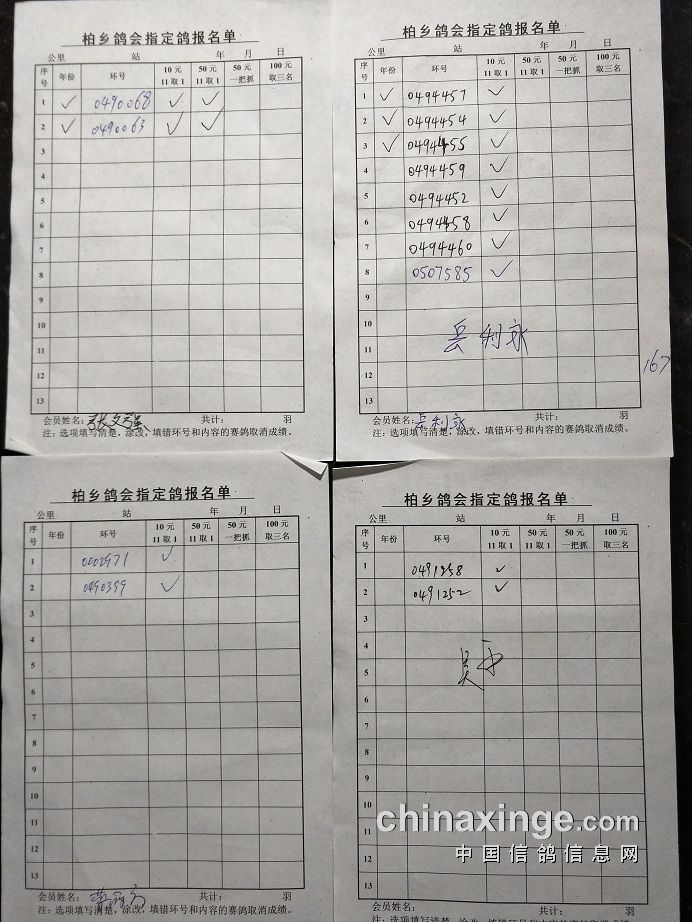 柏乡鸽会指定鸽报名单
公里 站 年 月 日
序号 年份 环号 10元11取1 50元11取1 50元一把抓 100元取三名
1 ✓ 0490068 ✓ ✓
2 ✓ 0490063 ✓ ✓
3
4
5
6
7
8
9
10
11
12
13
会员姓名：张文强 共计： 羽
注：选项填写清楚，涂改，填错环号和内容的赛鸽取消成绩。
柏乡鸽会指定鸽报名单
公里 站 年 月 日
序号 年份 环号 10元11取1 50元11取1 50元一把抓 100元取三名
1 ✓ 0494457 ✓
2 ✓ 0494454 ✓
3 ✓ 0494455 ✓
4 0494459 ✓
5 0494452 ✓
6 0494458 ✓
7 0494460 ✓
8 0507585 ✓
9
10
岳利永
11
12
13
167
会员姓名：岳利永 共计： 羽
注：选项填写清楚，涂改，填错环号和内容的赛鸽取消成绩。
柏乡鸽会指定鸽报名单
公里 站 年 月 日
序号 年份 环号 10元11取1 50元11取1 50元一把抓 100元取三名
1 0002971 ✓
2 0490399 ✓
3
4
5
6
7
8
9
10
11
12
13
会员姓名： 共计： 羽
注：选项填写清楚，涂改，填错环号和内容的赛鸽取消成绩。
柏乡鸽会指定鸽报名单
公里 站 年 月 日
序号 年份 环号 10元11取1 50元11取1 50元一把抓 100元取三名
1 0491258 ✓
2 0491252 ✓
3
4
5
6
7
8
9
10
11
12
13
chinaxinge.com
中国信鸽信息网
会员姓名： 共计： 羽